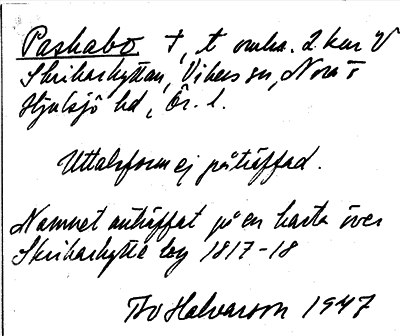 Paskabo †, t omkr. 2 km V
Skrikarhyttan, Vikers sn, Nora o
Hjulsjö hd, Ör. l.
Uttalsform ej påträffad.
Namnet anträffat på en karta över
Skrikarhytte by 1817-18
Halvarson 1947